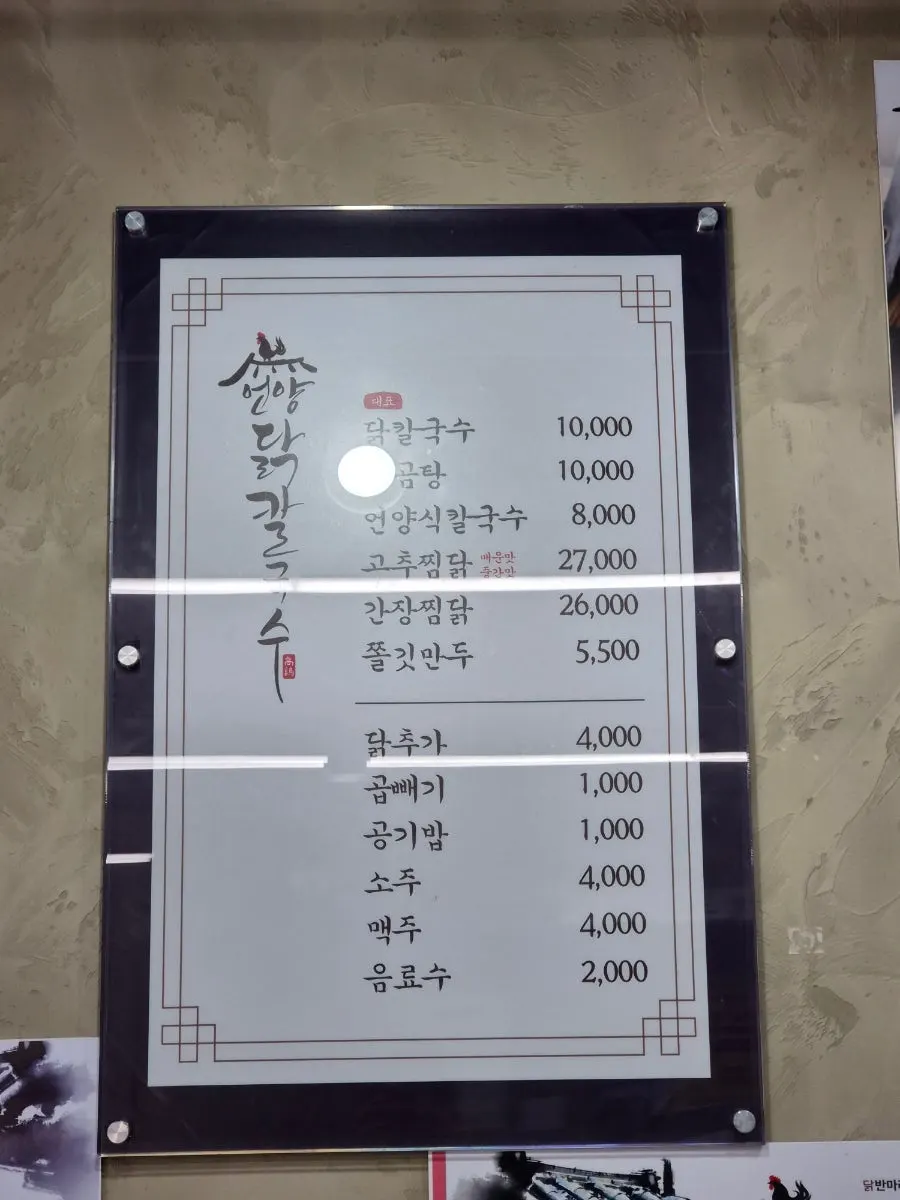 언양
닭
칼
수
대표
닭칼국수 10,000
곰탕 10,000
언양식칼국수 8,000
고추찜닭 매운맛 27,000
중간맛
간장찜닭 26,000
쫄깃만두 5,500
닭추가 4,000
곱빼기 1,000
공기밥 1,000
소주 4,000
맥주 4,000
음료수 2,000